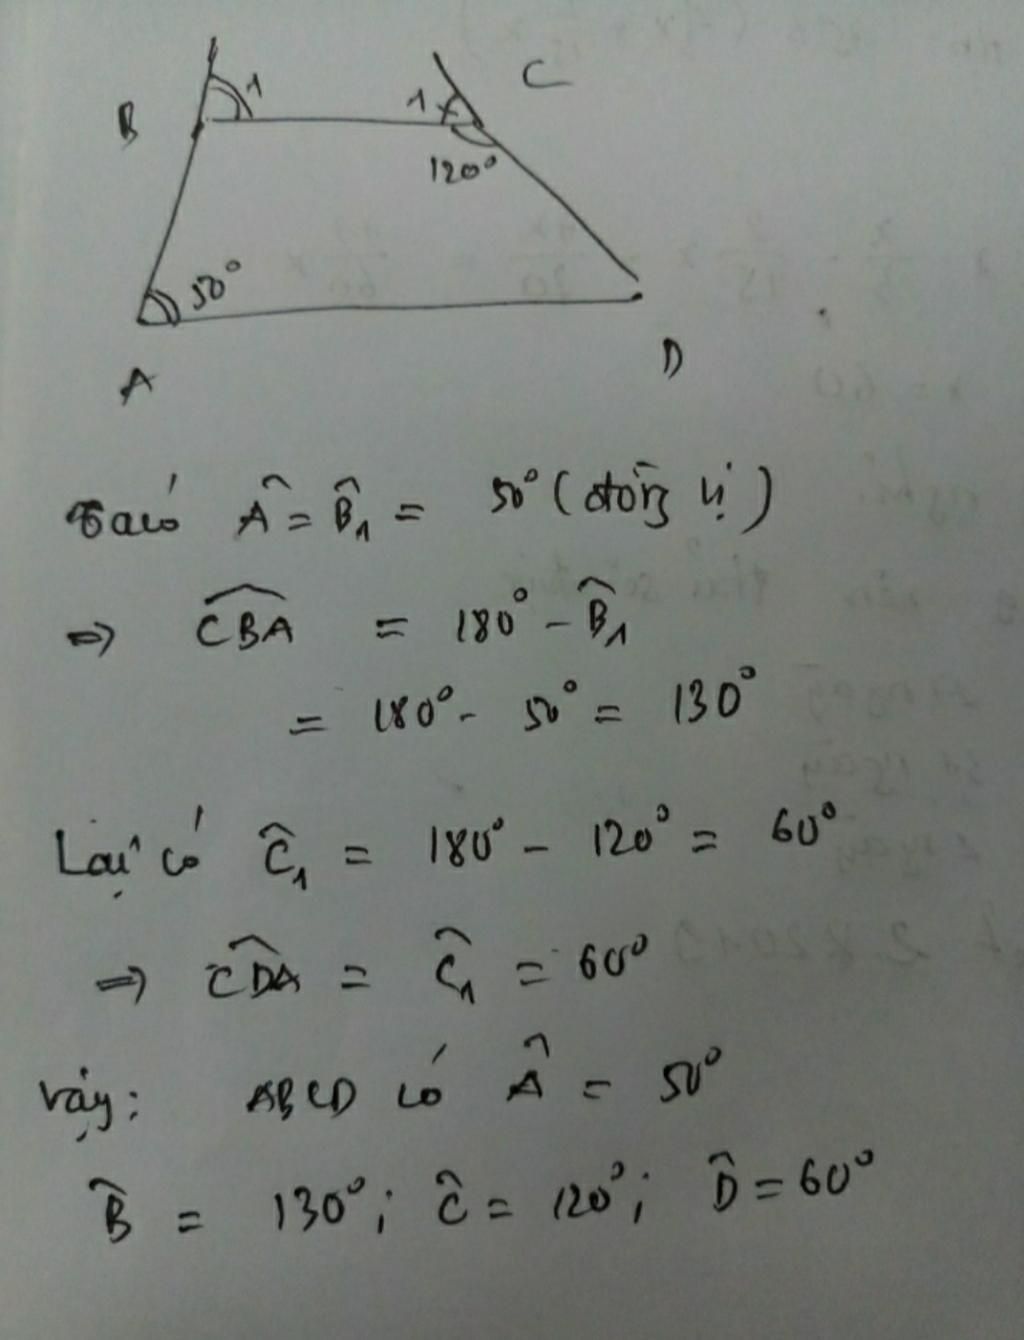 B 1 1 C
120°
50°
A D
Ta có Â = B̂₁ = 50° (đồng vị)
⇒ \widehat{CBA} = 180° - B̂₁
= 180° - 50° = 130°
Lại có Ĉ₁ = 180° - 120° = 60°
⇒ \widehat{CDA} = Ĉ₁ = 60°
Vậy: ABCD có Â = 50°
B̂ = 130°; Ĉ = 120°; D̂ = 60°